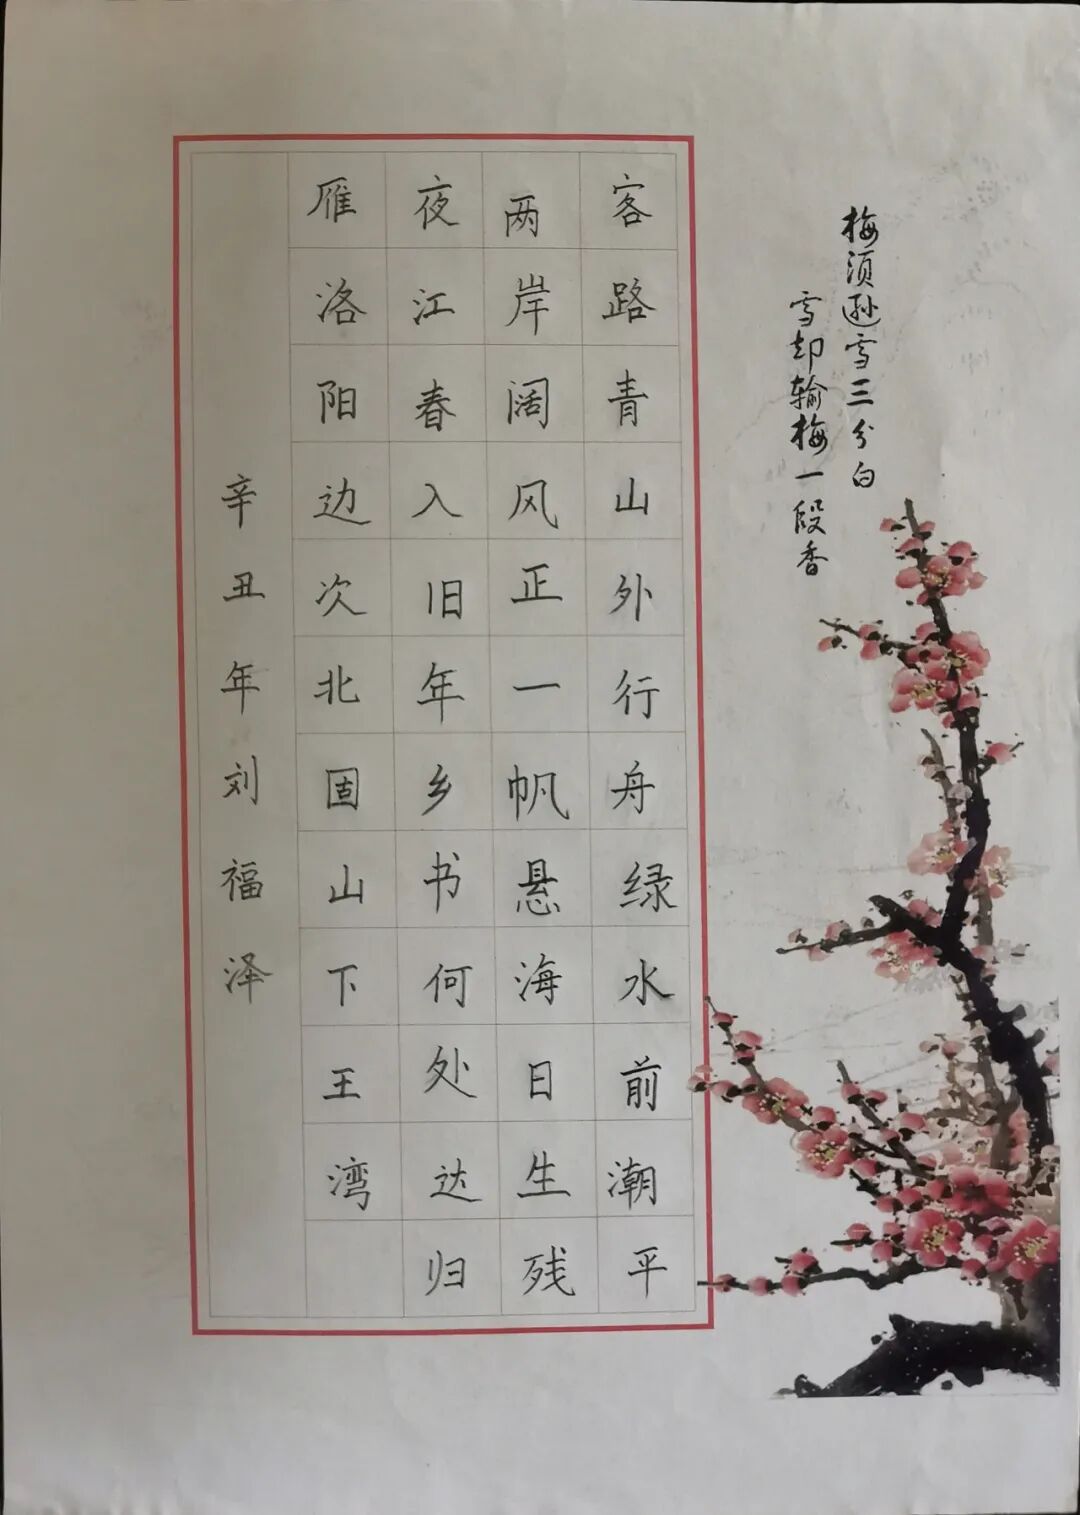 梅须逊雪三分白
雪却输梅一段香
客路青山外行舟绿水前潮平
两岸阔风正一帆悬海日生残
夜江春入旧年乡书何处达归
雁洛阳边次北固山下王湾
辛丑年刘福泽